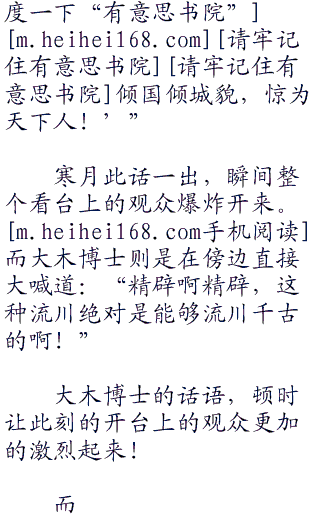 度一下“有意思书院”]
[m.heihei168.com][请牢记
住有意思书院][请牢记住有
意思书院]倾国倾城貌，惊为
天下人！’”
寒月此话一出，瞬间整
个看台上的观众爆炸开来。
[m.heihei168.com手机阅读]
而大木博士则是在傍边直接
大喊道：“精辟啊精辟，这
种流川绝对是能够流川千古
的啊！”
大木博士的话语，顿时
让此刻的开台上的观众更加
的激烈起来！
而